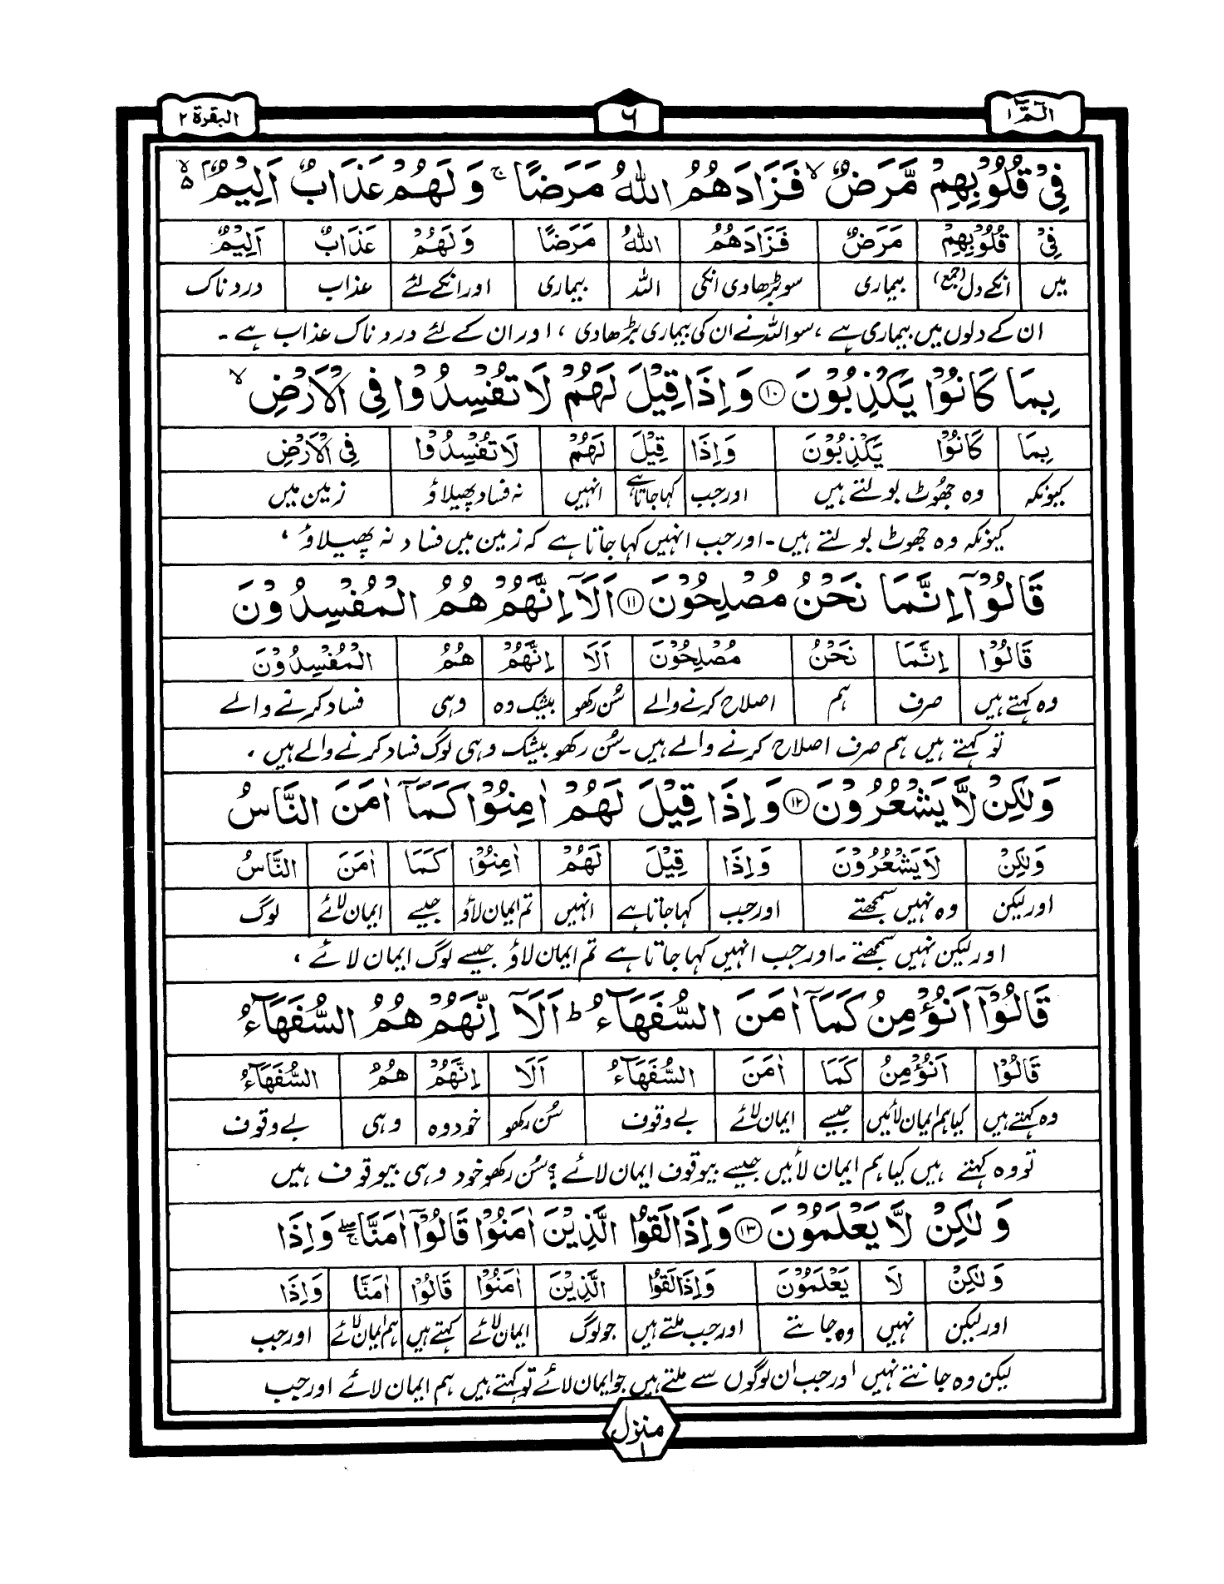 الٓمّٓ ١
٦
البقرة ٢
فِىْ قُلُوْبِهِمْ مَّرَضٌ ۙ فَزَادَهُمُ اللّٰهُ مَرَضًا ۚ وَ لَهُمْ عَذَابٌ اَلِيْمٌۢ ۙ۬
فِىْ قُلُوْبِهِمْ مَرَضٌ فَزَادَهُمُ اللّٰهُ مَرَضًا وَ لَهُمْ عَذَابٌ اَلِيْمٌ
میں انکے دل (جمع) بیماری سو بڑھادی انکی اللہ بیماری اور انکے لئے عذاب دردناک
ان کے دلوں میں بیماری ہے ، سو اللہ نے ان کی بیماری بڑھادی ، اور ان کے لئے دردناک عذاب ہے ۔
بِمَا كَانُوْا يَكْذِبُوْنَ ۝١٠ وَ اِذَا قِيْلَ لَهُمْ لَا تُفْسِدُوْا فِى الْاَرْضِ ۙ
بِمَا كَانُوْا يَكْذِبُوْنَ وَ اِذَا قِيْلَ لَهُمْ لَا تُفْسِدُوْا فِى الْاَرْضِ
کیونکہ وہ جھوٹ بولتے ہیں اور جب کہا جاتا ہے انہیں نہ فساد پھیلاؤ زمین میں
کیونکہ وہ جھوٹ بولتے ہیں ۔ اور جب انہیں کہا جاتا ہے کہ زمین میں فساد نہ پھیلاؤ ،
قَالُوْٓا اِنَّمَا نَحْنُ مُصْلِحُوْنَ ۝١١ اَلَآ اِنَّهُمْ هُمُ الْمُفْسِدُوْنَ
قَالُوْا اِنَّمَا نَحْنُ مُصْلِحُوْنَ اَلَا اِنَّهُمْ هُمُ الْمُفْسِدُوْنَ
وہ کہتے ہیں صرف ہم اصلاح کرنے والے سُن رکھو بیشک وہ وہی فساد کرنے والے
تو کہتے ہیں ہم صرف اصلاح کرنے والے ہیں ۔ سُن رکھو بیشک وہی لوگ فساد کرنے والے ہیں ،
وَلٰكِنْ لَّا يَشْعُرُوْنَ ۝١٢ وَ اِذَا قِيْلَ لَهُمْ اٰمِنُوْا كَمَآ اٰمَنَ النَّاسُ
وَلٰكِنْ لَا يَشْعُرُوْنَ وَ اِذَا قِيْلَ لَهُمْ اٰمِنُوْا كَمَا اٰمَنَ النَّاسُ
اور لیکن وہ نہیں سمجھتے اور جب کہا جاتا ہے انہیں تم ایمان لاؤ جیسے ایمان لائے لوگ
اور لیکن نہیں سمجھتے ۔ اور جب انہیں کہا جاتا ہے تم ایمان لاؤ جیسے لوگ ایمان لائے ،
قَالُوْٓا اَنُؤْمِنُ كَمَآ اٰمَنَ السُّفَهَآءُ ؕ اَلَآ اِنَّهُمْ هُمُ السُّفَهَآءُ
قَالُوْا اَنُؤْمِنُ كَمَا اٰمَنَ السُّفَهَآءُ اَلَا اِنَّهُمْ هُمُ السُّفَهَآءُ
وہ کہتے ہیں کیا ہم ایمان لائیں جیسے ایمان لائے بے وقوف سُن رکھو خود وہ وہی بے وقوف
تو وہ کہتے ہیں کیا ہم ایمان لائیں جیسے بیوقوف ایمان لائے ؟ سُن رکھو خود وہی بیوقوف ہیں
وَ لٰكِنْ لَّا يَعْلَمُوْنَ ۝١٣ وَ اِذَا لَقُوا الَّذِيْنَ اٰمَنُوْا قَالُوْٓا اٰمَنَّا ۖۚ وَ اِذَا
وَ لٰكِنْ لَا يَعْلَمُوْنَ وَ اِذَا لَقُوا الَّذِيْنَ اٰمَنُوْا قَالُوْا اٰمَنَّا وَ اِذَا
اور لیکن نہیں وہ جانتے اور جب ملتے ہیں جو لوگ ایمان لائے کہتے ہیں ہم ایمان لائے اور جب
لیکن وہ جانتے نہیں اور جب ان لوگوں سے ملتے ہیں جو ایمان لائے تو کہتے ہیں ہم ایمان لائے اور جب
منزل ١